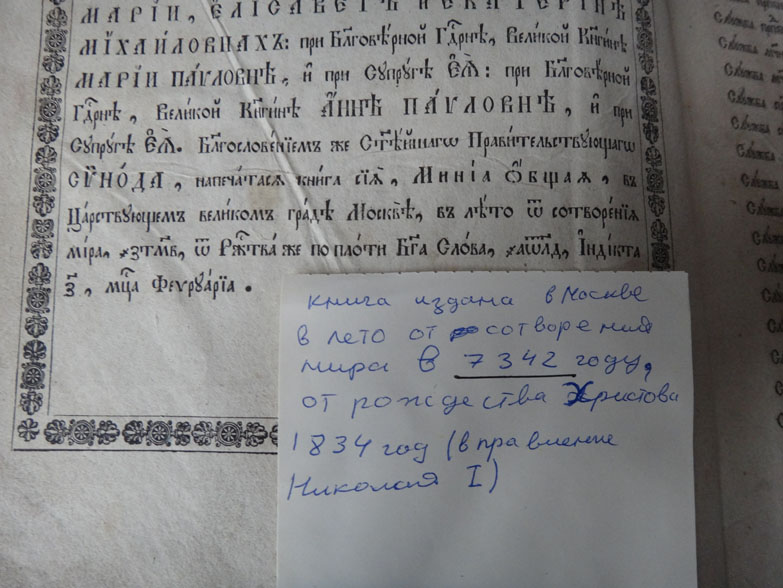 МАРІИ, ЕЛІСАВЕТѢ И ЕКАТЕРІНѢ
МІХАИЛОВНАХЪ: при Бл҃говѣ́рной Гд҃рнѣ, Вели́кой Кн҃ги́нѣ
МАРІИ ПА́ѴЛОВНѢ, и҆ при Сꙋпрꙋ́гѣ Е҆Ѧ̀: при Бл҃говѣ́рной
Гд҃рнѣ, Вели́кой Кн҃ги́нѣ А҆́ННѢ ПА́ѴЛОВНѢ, и҆ при
Сꙋпрꙋ́гѣ Е҆Ѧ̀. Бл҃гослове́нїемъ же Ст҃ѣ́йшагѡ Прави́тельствꙋющагѡ
СѴНО́ДА, напеча́тасѧ кни́га сїѧ̀, Мині́а О҆́бщаѧ, въ
Ца́рствꙋющемъ вели́комъ гра́дѣ Москвѣ̀, въ лѣ́то ѿ сотворе́нїѧ
мі́ра, ҂зтм҃в, ѿ Рж҃тва̀ же по пло́ти Бг҃а Сло́ва, ҂аѡл҃д, І҆ндікта
з҃, мц҃а Феврꙋа́рїа.
Слꙋжба
Слꙋжба
Слꙋжба
Слꙋжба
Слꙋжба
Слꙋжба
Слꙋжба
книга издана в Москве
в лето от сотворения
мира в 7342 году,
от рождества Христова
1834 год (в правление
Николая I)